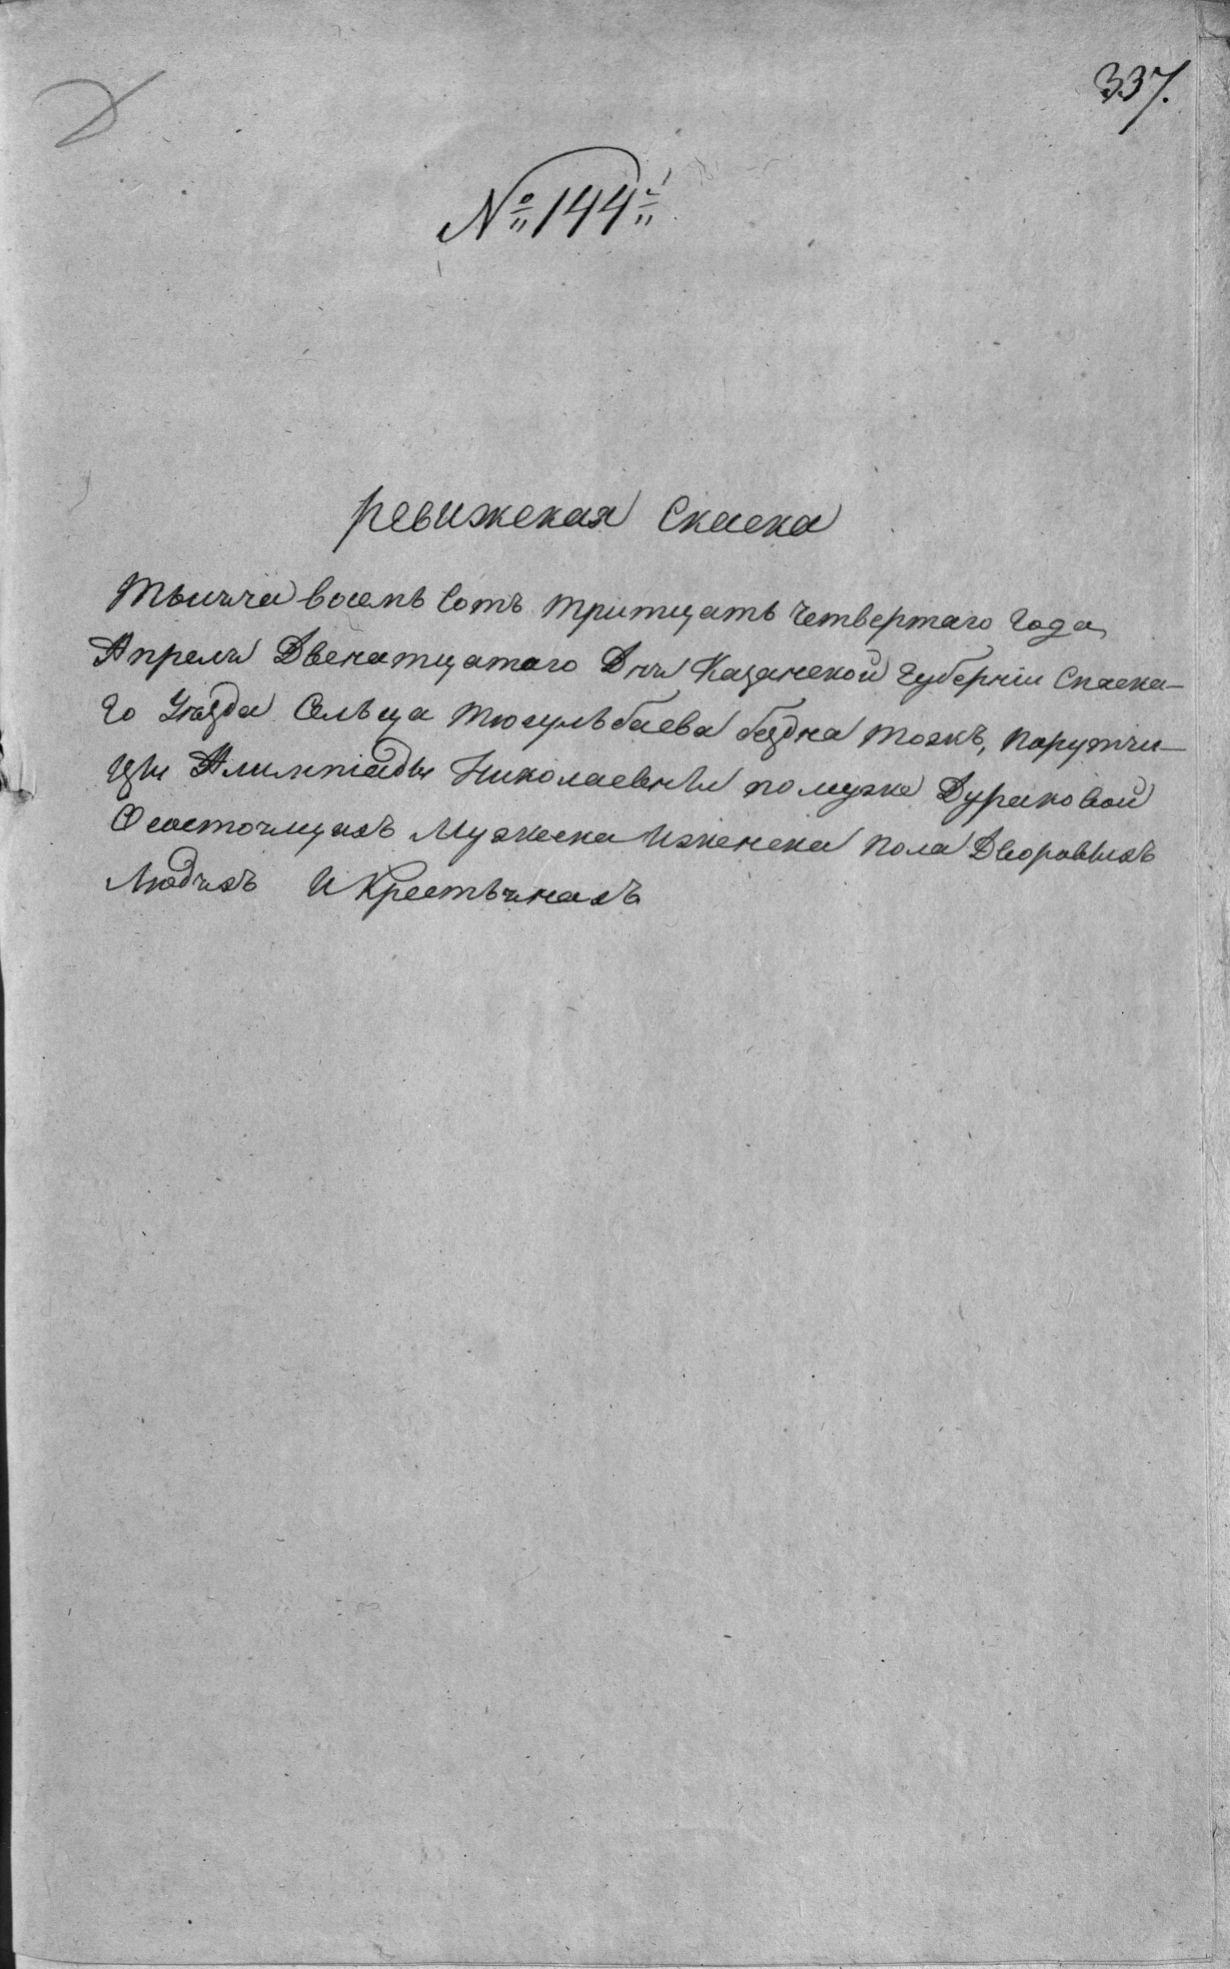 337.
№ 144й
ревижская Скаска
Тысяча восемь Сотъ тритцать четвертаго года
Апреля Двенатцатаго Дня Казанской губерніи Спаска-
го Уезда Сельца Тюгульбаева бездна тожъ, Порутчи-
цы Алимпіады Николаевны по муже Дураковой
О состоящихъ Мужеска Иженска пола Дворовыхъ
Людяхъ И Крестьянахъ